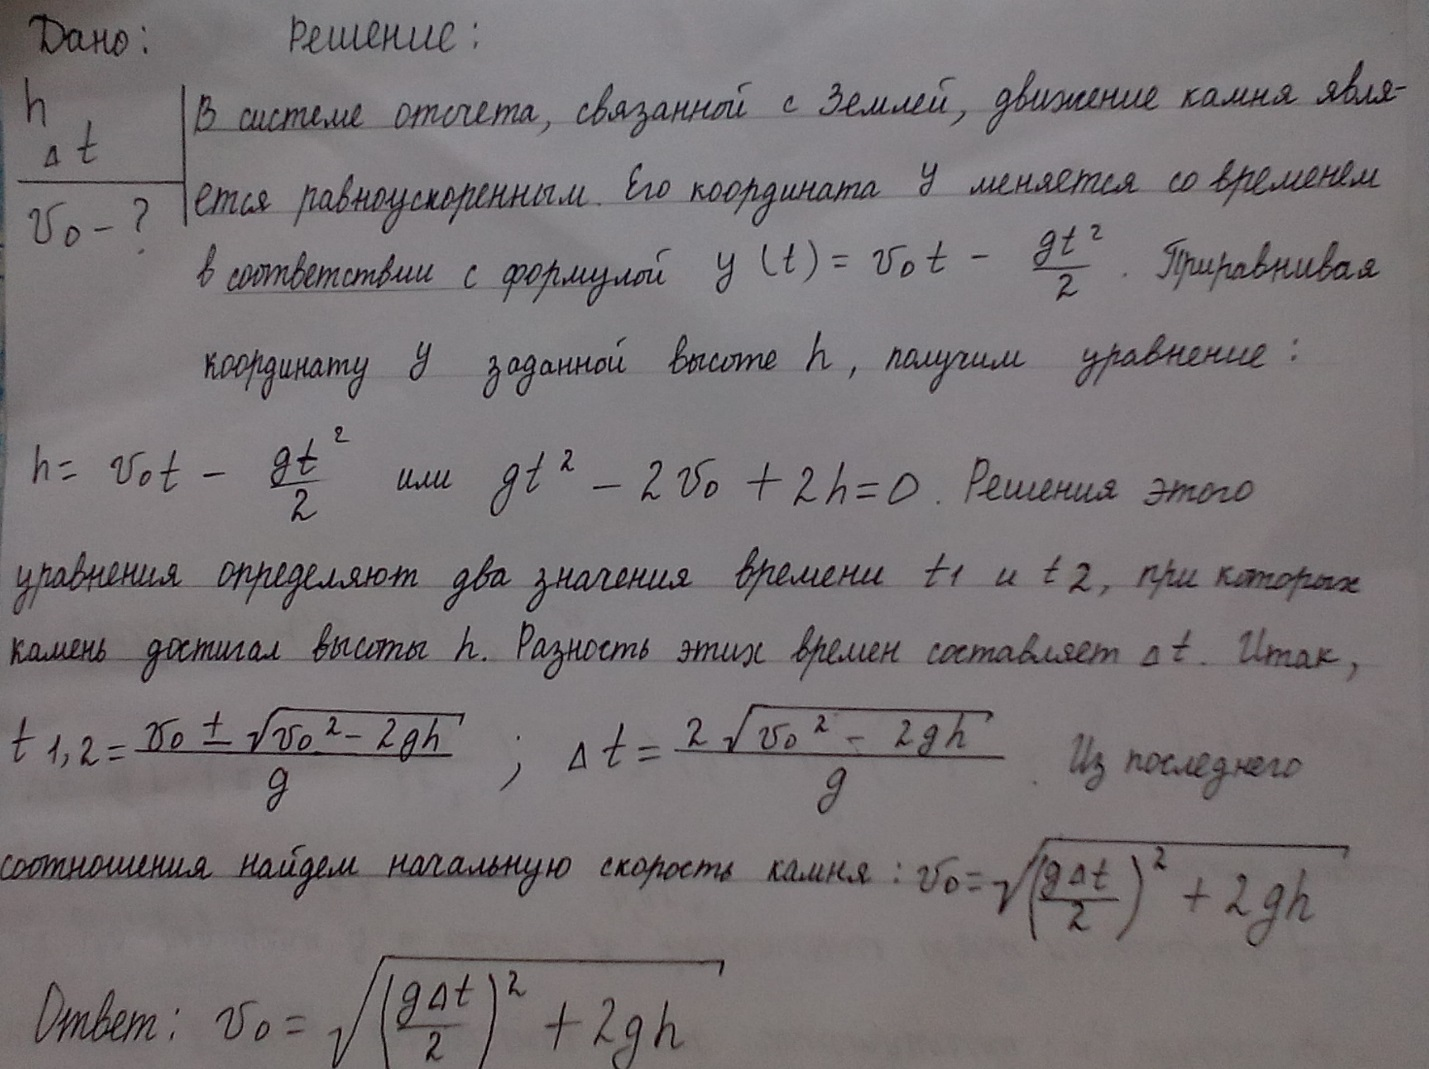 Дано: Решение:
h
Δt
v₀ - ?
В системе отсчета, связанной с Землей, движение камня явля-
ется равноускоренным. Его координата y меняется со временем
в соответствии с формулой y(t) = v₀t - gt²/2. Приравнивая
координату y заданной высоте h, получим уравнение:
h = v₀t - gt²/2 или gt² - 2v₀ + 2h = 0. Решения этого
уравнения определяют два значения времени t1 и t2, при которых
камень достигал высоты h. Разность этих времен составляет Δt. Итак,
t1,2 = (v₀ ± √(v₀² - 2gh))/g ; Δt = 2√(v₀² - 2gh)/g. Из последнего
соотношения найдем начальную скорость камня: v₀ = √((gΔt/2)² + 2gh)
Ответ: v₀ = √((gΔt/2)² + 2gh)